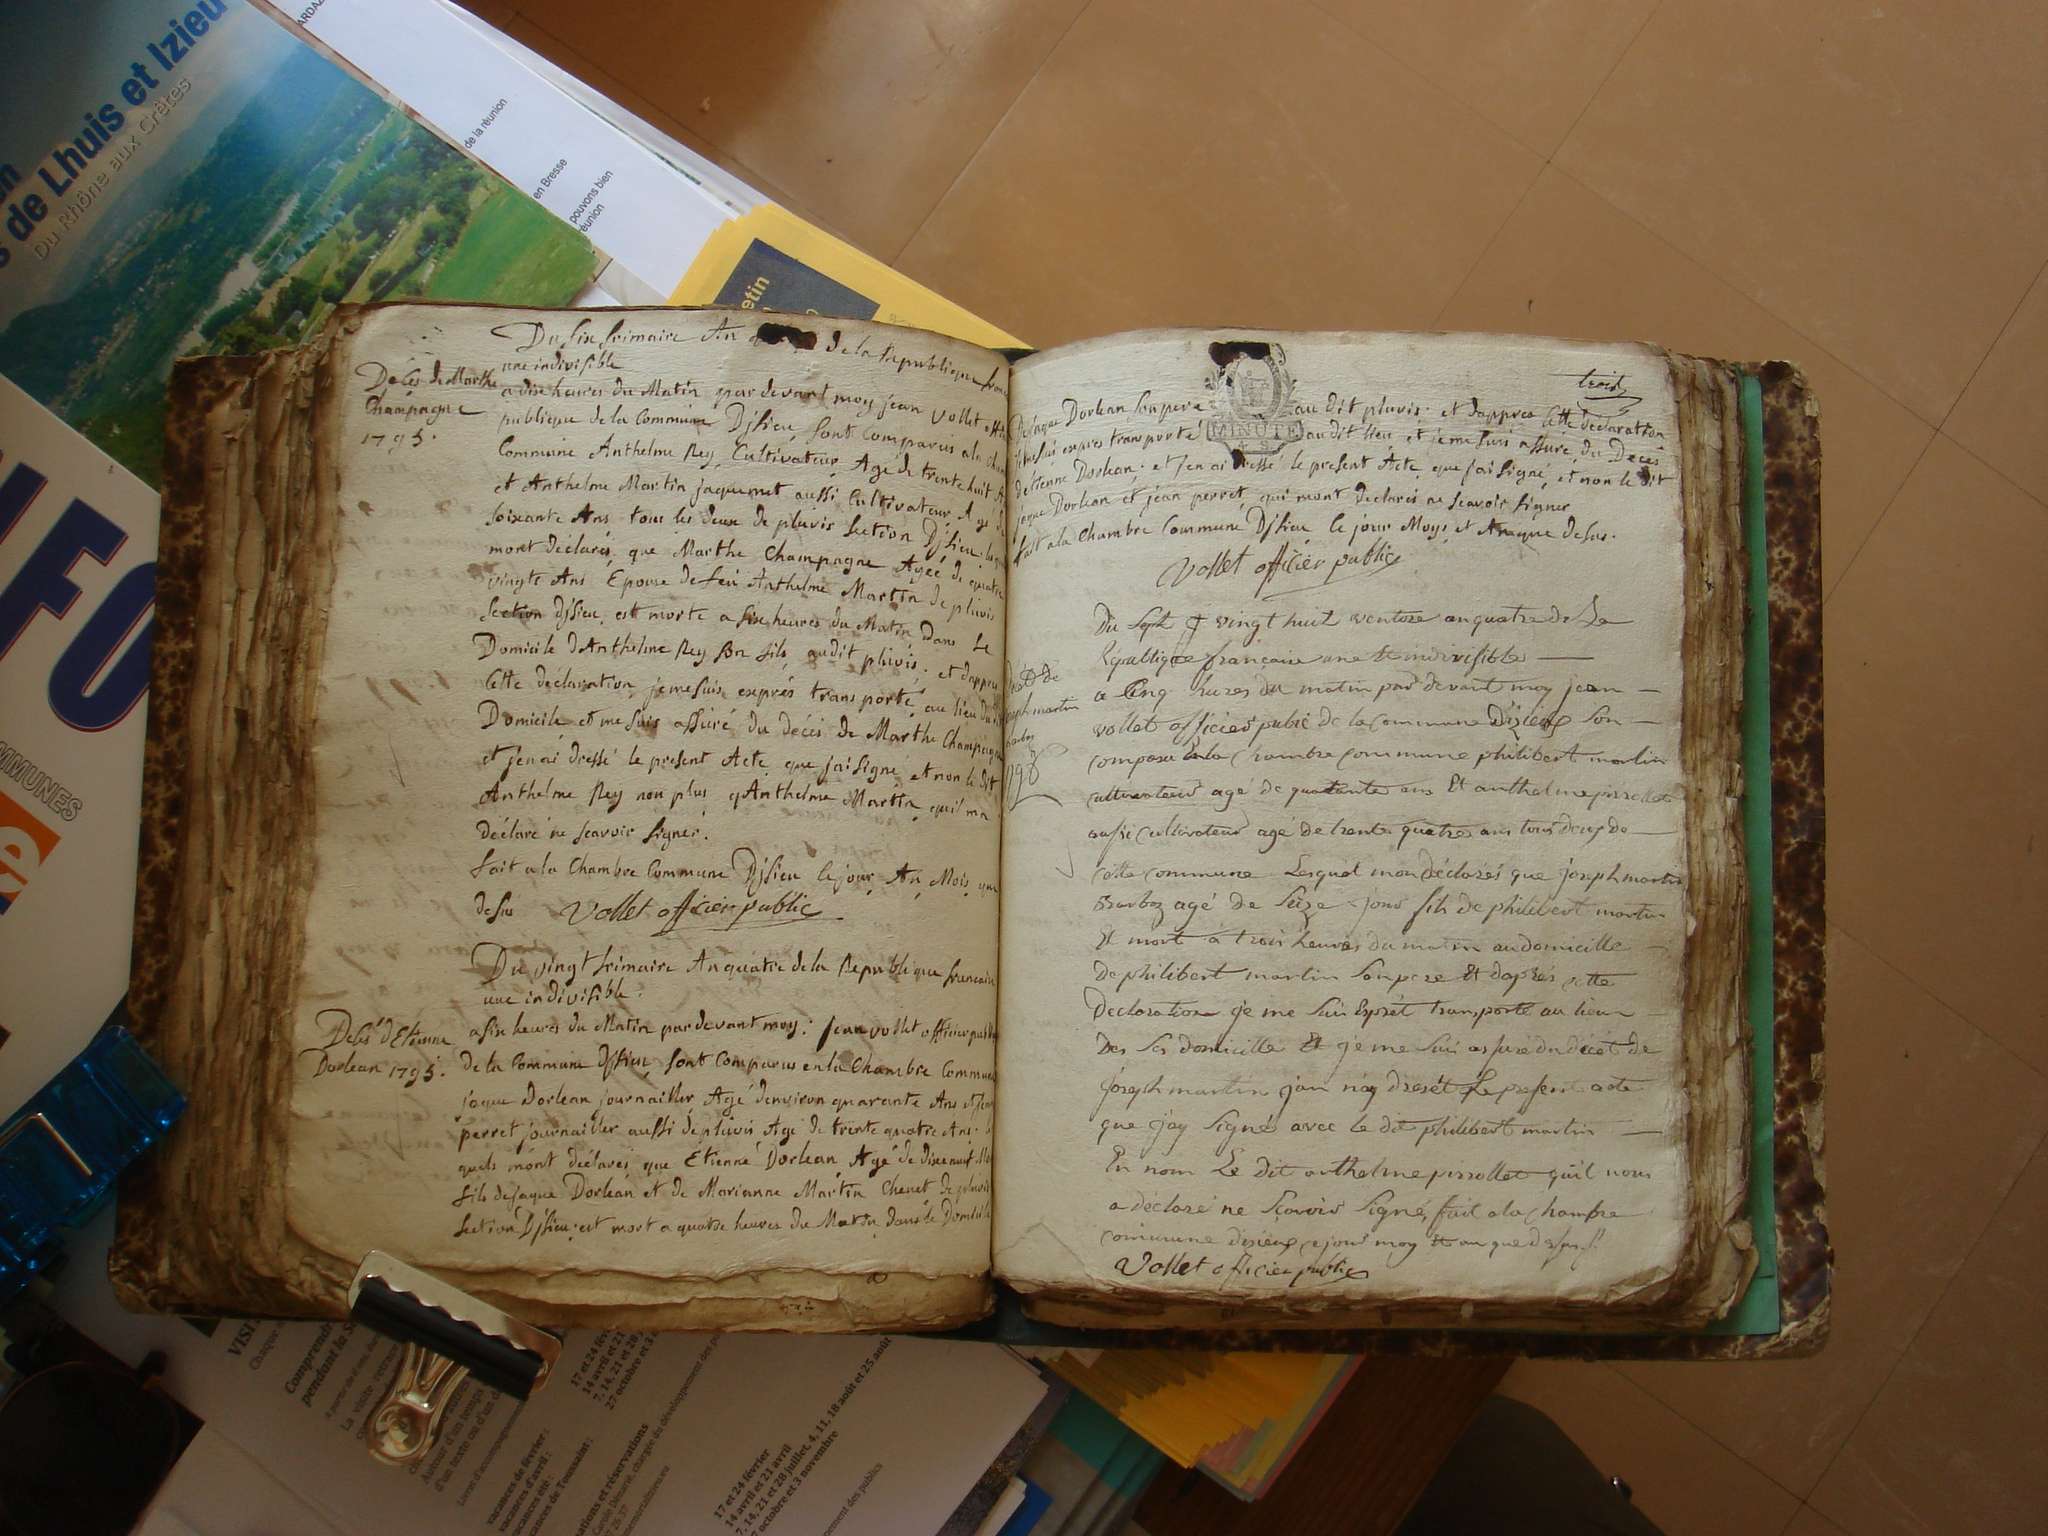 de Lhuis et Izieu
Du Rhône aux Crêtes
de la réunion
en Bresse
pouvons bien
réunion
Du six frimaire An de la Republique
une indivisible
Décés de Marthe
Champagne
1795.
a dix heures du Matin par devant moy jean Vollet
publique de la Commune Djsieu, sont Comparus a la
Commune Anthelme Rey, Cultivateur Agé de trente huit
et Anthelme Martin jaquemet aussi Cultivateur Agé de
soixante Ans tous les deux de pluvis section Djsieu.
mont déclarés que Marthe Champagne Agée de quatre
vingts Ans Epouse de feu Anthelme Martin de pluvis
section Djsieu, est morte a six heures du Matin Dans le
Domicile d'Anthelme Rey son fils audit pluvis. et dapprés
Cette déclaration jemesuis exprés transporté au lieu du dit
Domicile et me suis assuré du décés de Marthe Champagne
et jenai dressé le present Acte que jai signé et non le dit
Anthelme Rey non plus qAnthelme Martin qui ma
déclaré ne scavoir signer.
fait a la Chambre Commune Djsieu le jour An Mois que
desus Vollet officier public
Du vingt frimaire An quatre de la Republique francaise
une indivisible.
Décés d'Etienne
Dorlean 1795.
a six heures du Matin par devant moy: Jean vollet officier public
de la Commune Djsieu, sont Comparus en la Chambre Commune
jaque Dorlean journailler Agé denviron quarante Ans et jean
perret journailler aussi de pluvis Agé de trente quatre Ans.
quels mont déclarés que Etienne Dorlean Agé de dixe neuf
fils de jaque Dorlean et de Marianne Martin Chenet de pluvis
section Djsieu, est mort a quatre heures du Matin dans le Domicile
trois
MINUTE
De jaque Dorlean son pere au dit pluvis. et dappres Cette déclaration
jemesuis expres transporté audit lieu et jeme suis assuré du Deces
detienne Dorlean. et jen ai dressé le present Acte que jai signé, et non le dit
jaque Dorlean et jean perret qui mont declarés ne scavoir signer
fait a la Chambre Commune Djsieu le jour Moys et An que desus.
Vollet officier public
Du vingt huit ventose an quatre de La
Republique française une et indivisible
joseph martin
a Cinq hures du matin par devant moy jean
vollet officier public de la commune Dizieux son
compasu a la Chambre commune philibert martin
cultivateur agé de quarante ans Et anthelme pirrollet
aussi cultivateur agé de trente quatre ans tous deux de
cette commune Lesquel mon déclarés que joseph martin
Barboz agé de Seize jour fils de philibert martin
Et mort a trois heures du matin au domicille
De philibert martin son pere Et daprés cette
declaration je me suis Exprét transporté au lieux
Des Ses domicille Et je me suis assuré du decet de
joseph martin jan nay dresét Le present acte
que jay Signés avec le dit philibert martin
En nom Le dit anthelme pirrollet quil nous
a déclaré ne Scavoir Signé, fait a la chambre
commune dizieux ce jour moy Et an que desus
Vollet officier public
MMUNES
VISI
Chaque
Comprendre
pendant la
La visite
Autour d'un temps
d'un texte ou d'un
Livret d'accompagnement
vacances de février :
vacances d'avril :
vacances été :
vacances de Toussaint :
17 et 24 février
14 avril et 21 avril
7, 14, 21 et 28 juillet, 4, 11, 18 août et 25 août
27 octobre et 3 novembre
ations et réservations
chargée du développement des publics